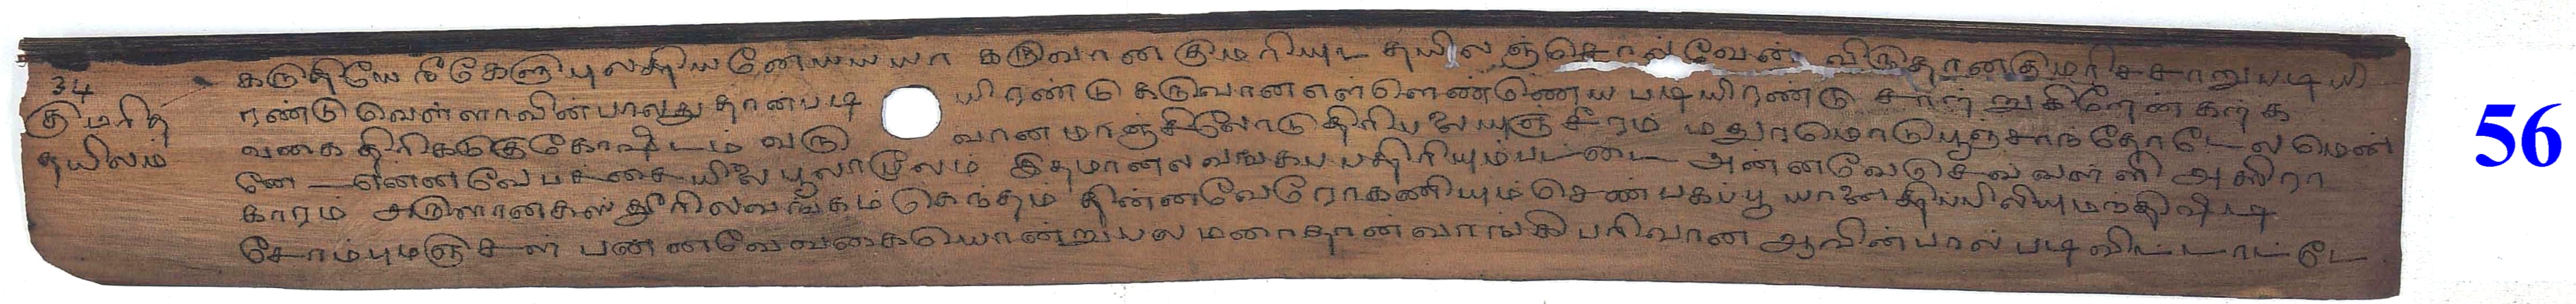 34
குமரித்
தயிலம்
கருதியே நீகேளு புலத்தியனேயய்யா கருவான குமரியுட தயிலஞ்சொல்வேன் விருதான குமரிச்சாறு படியி
ரண்டு வெள்ளாவின்பாலது தான்படி யிரண்டு கருவான எள்ளெண்ணெய் படியிரண்டு சாற்றுகிறேன் கற்க
வகை திரிகடுகு கோஷ்டம் வருவான மாஞ்சிலோடு திரிபலையுஞ்சீரம் மதுரமொடு பூஞ்சாந்தோடேலமென்
னே என்னவே பச்சையிலை மூலம் இதமான லவங்கப்பத்திரியும்பட்டை அன்னவே செவ்வள்ளி அதிரா
காரம் அருளான கஸ்தூரி லவங்கம் கெந்தம் தின்னவே ரோகணியும் செண்பகப்பூ யானைதிப்பிலியு
சோம்பு மஞ்சள் பண்ணவே வகைவொன்று பல மனாதான் வாங்கி பரிவான ஆவின்பால் படி விட்டாட்டே
56